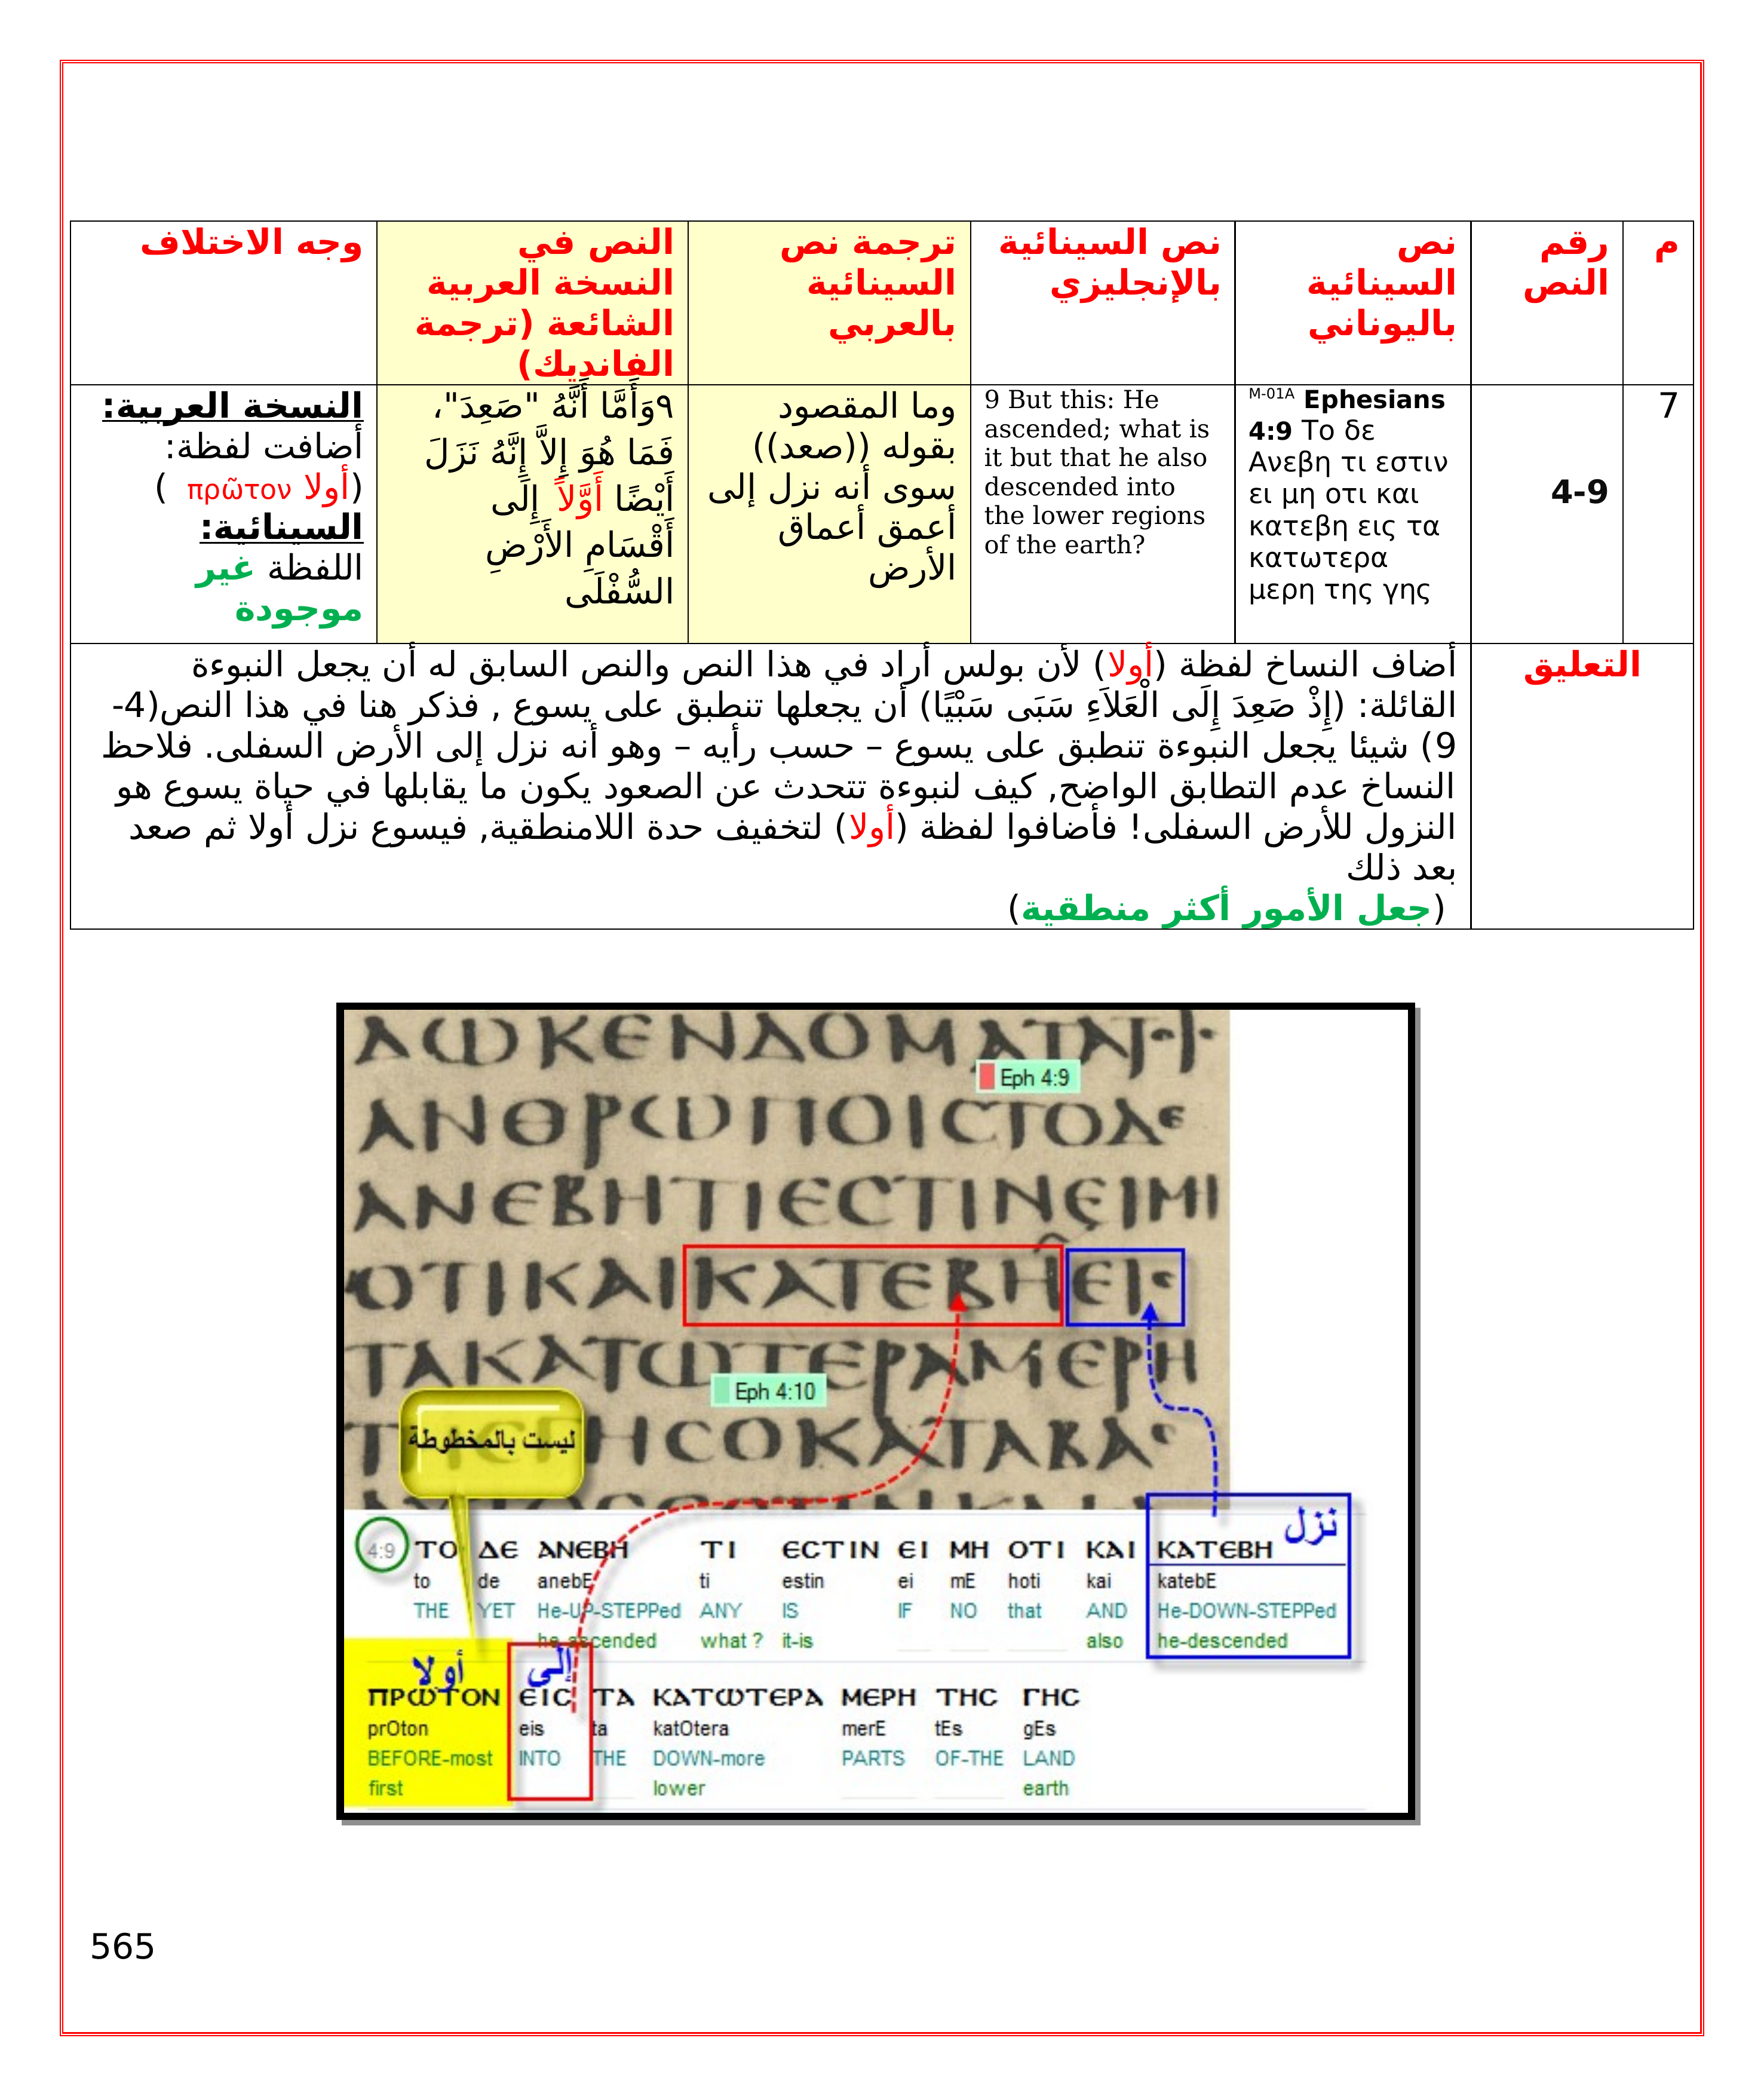 م
رقم
النص
نص
السينائية
باليوناني
نص السينائية
بالإنجليزي
ترجمة نص
السينائية
بالعربي
النص في
النسخة العربية
الشائعة (ترجمة
الفانديك)
وجه الاختلاف
7
4-9
M-01A Ephesians
4:9 Το δε
Ανεβη τι εστιν
ει μη οτι και
κατεβη εις τα
κατωτερα
μερη της γης
9 But this: He
ascended; what is
it but that he also
descended into
the lower regions
of the earth?
وما المقصود
بقوله ((صعد))
سوى أنه نزل إلى
أعمق أعماق
الأرض
٩وَأَمَّا أَنَّهُ "صَعِدَ"،
فَمَا هُوَ إِلاَّ إِنَّهُ نَزَلَ
أَيْضًا أَوَّلاً إِلَى
أَقْسَامِ الأَرْضِ
السُّفْلَى
النسخة العربية:
أضافت لفظة:
(أولا πρῶτον )
السينائية:
اللفظة غير
موجودة
التعليق
أضاف النساخ لفظة (أولا) لأن بولس أراد في هذا النص والنص السابق له أن يجعل النبوءة
القائلة: (إِذْ صَعِدَ إِلَى الْعَلاَءِ سَبَى سَبْيًا) أن يجعلها تنطبق على يسوع , فذكر هنا في هذا النص(4-
9) شيئا يجعل النبوءة تنطبق على يسوع – حسب رأيه – وهو أنه نزل إلى الأرض السفلى. فلاحظ
النساخ عدم التطابق الواضح, كيف لنبوءة تتحدث عن الصعود يكون ما يقابلها في حياة يسوع هو
النزول للأرض السفلى! فأضافوا لفظة (أولا) لتخفيف حدة اللامنطقية, فيسوع نزل أولا ثم صعد
بعد ذلك
(جعل الأمور أكثر منطقية)
ΑΩΚΕΝΔΟΜΑΤΑ
Eph 4:9
ΑΝΘΡΩΠΟΙϹΤΟΔε
ΑΝΕΒΗΤΙΕϹΤΙΝΕΙΜΙ
ΟΤΙΚΑΙΚΑΤΕΒΗΕΙϲ
ΤΑΚΑΤΩΤΕΡΑΜΕΡΗ
Eph 4:10
ΗϹΟΚΑΤΑΒΑϲ
ليست بالمخطوطة
نزل
4:9 ΤΟ ΔΕ ΑΝΕΒΗ ΤΙ ΕϹΤΙΝ ΕΙ ΜΗ ΟΤΙ ΚΑΙ ΚΑΤΕΒΗ
to de anebE ti estin ei mE hoti kai katebE
THE YET He-UP-STEPPed ANY IS IF NO that AND He-DOWN-STEPPed
he ascended what ? it-is also he-descended
أولا إلى
ΠΡΩΤΟΝ ΕΙϹ ΤΑ ΚΑΤΩΤΕΡΑ ΜΕΡΗ ΤΗϹ ΓΗϹ
prOton eis ta katOtera merE tEs gEs
BEFORE-most INTO THE DOWN-more PARTS OF-THE LAND
first lower earth
565